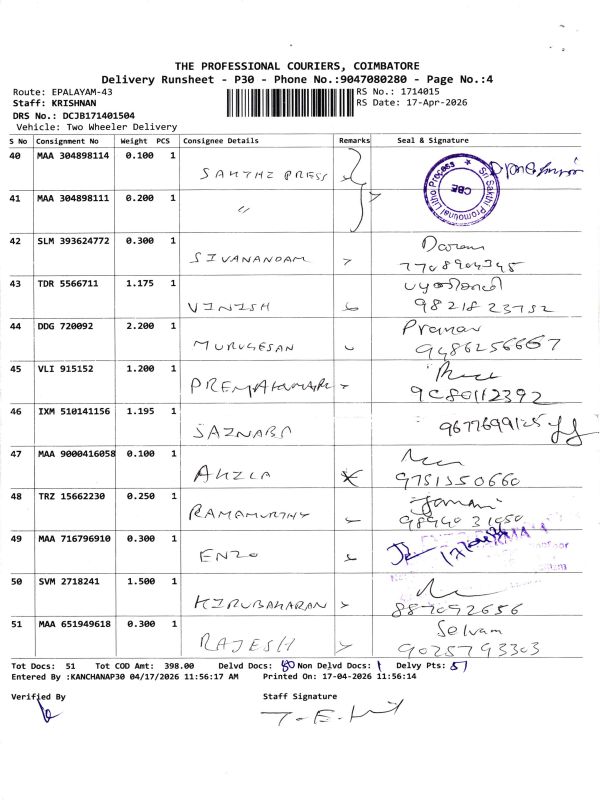 THE PROFESSIONAL COURIERS, COIMBATORE
Delivery Runsheet - P30 - Phone No.:9047080280 - Page No.:4
Route: EPALAYAM-43
RS No.: 1714015
Staff: KRISHNAN
RS Date: 17-Apr-2026
DRS No.: DCJB171401504
Vehicle: Two Wheeler Delivery
S No Consignment No Weight PCS Consignee Details Remarks Seal & Signature
40 MAA 304898114 0.100 1 SAKTHI PRESS
Sri Sakthi Promotional Litho Process ★ CBE
41 MAA 304898111 0.200 1 "
42 SLM 393624772 0.300 1 SIVANANDAM
43 TDR 5566711 1.175 1 VINISH 98218 23752
44 DDG 720092 2.200 1 MURUGESAN Pranav 9486256667
45 VLI 915152 1.200 1 PREMAKUMAR 9080112392
46 IXM 510141156 1.195 1 9677699125
47 MAA 9000416058 0.100 1 9751550660
48 TRZ 15662230 0.250 1 RAMAMURTHY
49 MAA 716796910 0.300 1 ENZO
50 SVM 2718241 1.500 1 KIRUBAHARAN 887092656
51 MAA 651949618 0.300 1 RAJESH Selvam 9025793303
Tot Docs: 51 Tot COD Amt: 398.00 Delvd Docs: 50 Non Delvd Docs: 1 Delvy Pts: 51
Entered By :KANCHANAP30 04/17/2026 11:56:17 AM Printed On: 17-04-2026 11:56:14
Verified By Staff Signature